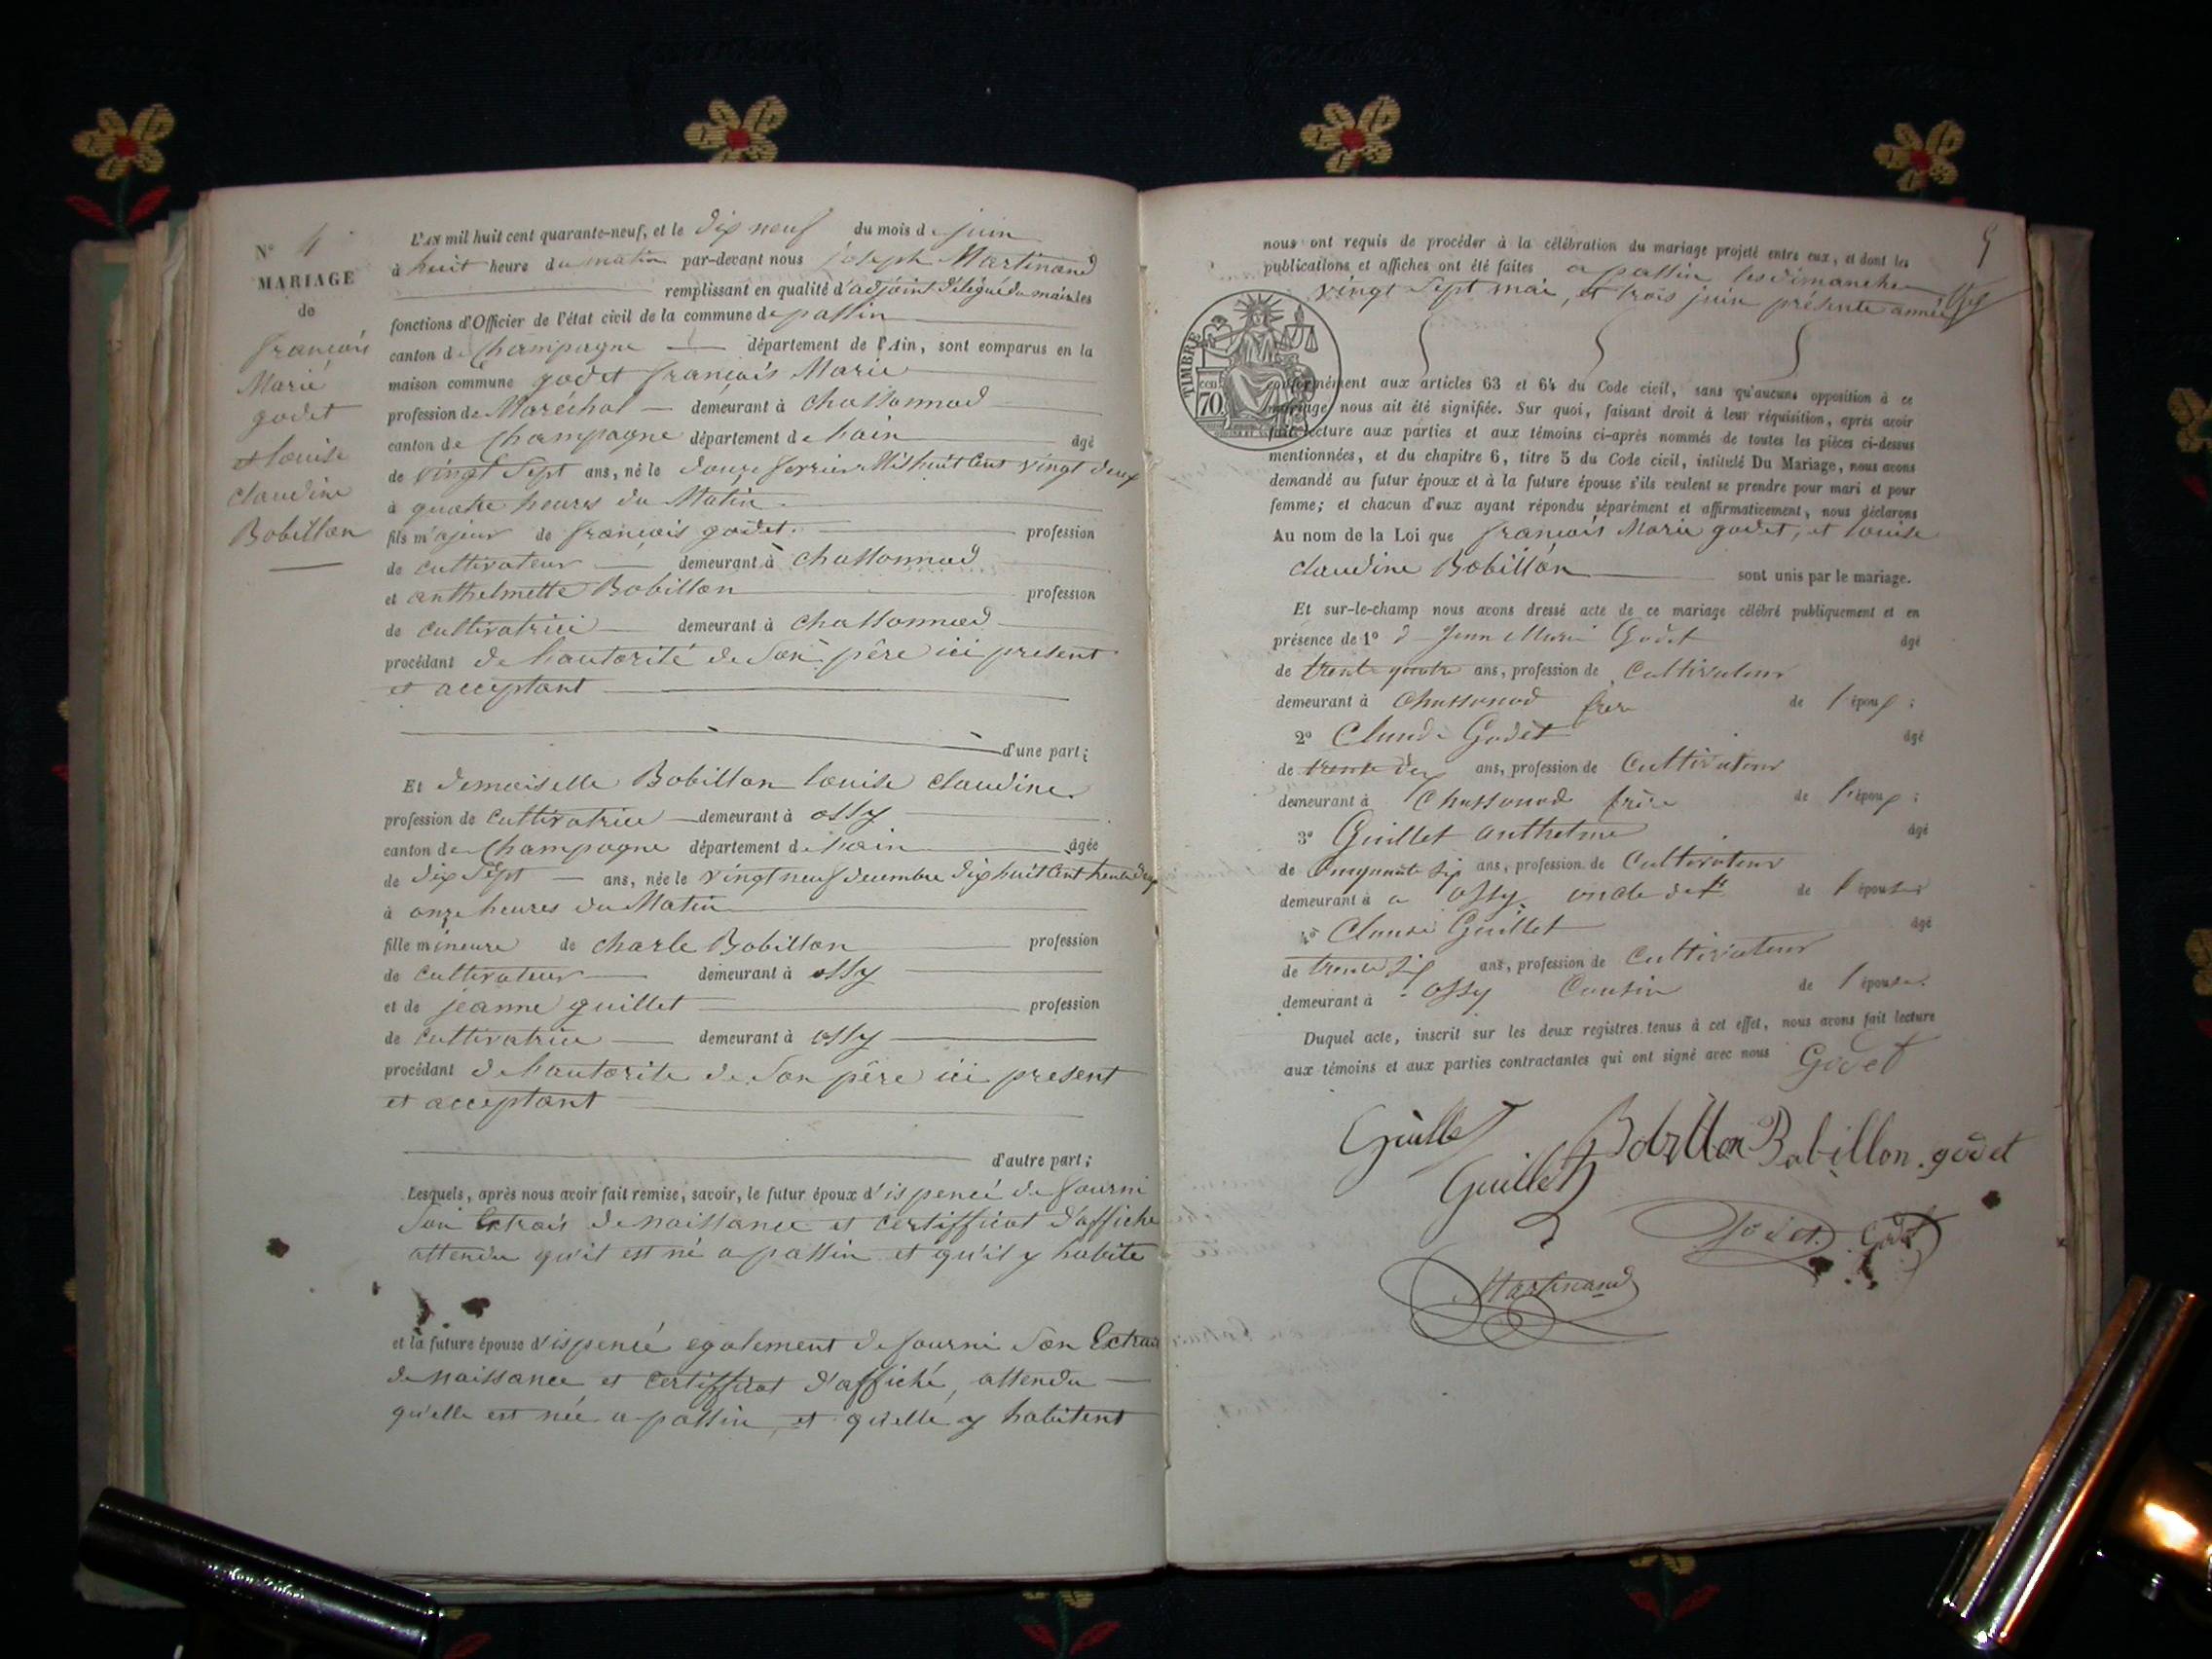 N° 4
MARIAGE
de
françois
Marie
godet
et louise
claudine
Bobillon
L'AN mil huit cent quarante-neuf, et le dix neuf du mois de juin
à huit heure du matin par-devant nous joseph Martinand
remplissant en qualité d'adjoint délégué du maire les
fonctions d'Officier de l'état civil de la commune de passin
canton de Champagne département de l'Ain, sont comparus en la
maison commune godet françois Marie
profession de Maréchal demeurant à chassonnod
canton de Champagne département de l'ain âgé
de vingt sept ans, né le douze fevrier Mil huit Cent vingt deux
à quatre heures du Matin
fils majeur de françois godet. profession
de cultivateur demeurant à chassonnod
et anthelmette Bobillon profession
de cultivatrice demeurant à chassonnod
procédant de l'autorité de son père ici présent
et acceptant
d'une part;
Et demoiselle Bobillon louise claudine
profession de cultivatrice demeurant à ossy
canton de Champagne département de l'ain âgée
de dix sept ans, née le vingt neuf decembre dix huit Cent trente deux
à onze heures du Matin
fille mineure de charle Bobillon profession
de cultivateur demeurant à ossy
et de jeanne guillet profession
de cultivatrice demeurant à ossy
procédant de l'autorite de son père ici present
et acceptant
d'autre part;
Lesquels, après nous avoir fait remise, savoir, le futur époux d'ispencé de fourni
son Extrais de naissance et certifficat d'affiche
attendu qu'il est né a passin et qu'il y habite
et la future épouse d'ispencé egalement de fourni son Extrais
de naissance et certifficat d'affiché, attendu
qu'elle est née a passin, et qu'elle y habitent
5
nous ont requis de procéder à la célébration du mariage projeté entre eux, et dont les
publications et affiches ont été faites a passin les dimanche
vingt sept mai, et trois juin présente année
TIMBRE
70
conformément aux articles 63 et 64 du Code civil, sans qu'aucune opposition à ce
mariage nous ait été signifiée. Sur quoi, faisant droit à leur réquisition, après avoir
fait lecture aux parties et aux témoins ci-après nommés de toutes les pièces ci-dessus
mentionnées, et du chapitre 6, titre 5 du Code civil, intitulé Du Mariage, nous avons
demandé au futur époux et à la future épouse s'ils veulent se prendre pour mari et pour
femme; et chacun d'eux ayant répondu séparément et affirmativement, nous déclarons
Au nom de la Loi que françois Marie godet, et louise
claudine Bobillon sont unis par le mariage.
Et sur-le-champ nous avons dressé acte de ce mariage célébré publiquement et en
présence de 1° Jean Marie Godet âgé
de trente quatre ans, profession de Cultivateur
demeurant à Chassonod frere de l'époux;
2° Claude Godet âgé
de trente deux ans, profession de Cultivateur
demeurant à Chassonod frère de l'époux;
3° Guillet anthelme âgé
de Cinquante six ans, profession de Cultivateur
demeurant à a ossy oncle de l'épouse
4° Claude Guillet âgé
de trente six ans, profession de Cultivateur
demeurant à ossy Cousin de l'épouse.
Duquel acte, inscrit sur les deux registres tenus à cet effet, nous avons fait lecture
aux témoins et aux parties contractantes qui ont signé avec nous Godet
Guillet Bobillon Bobillon godet
Guillet
Godet Godet
Martinand